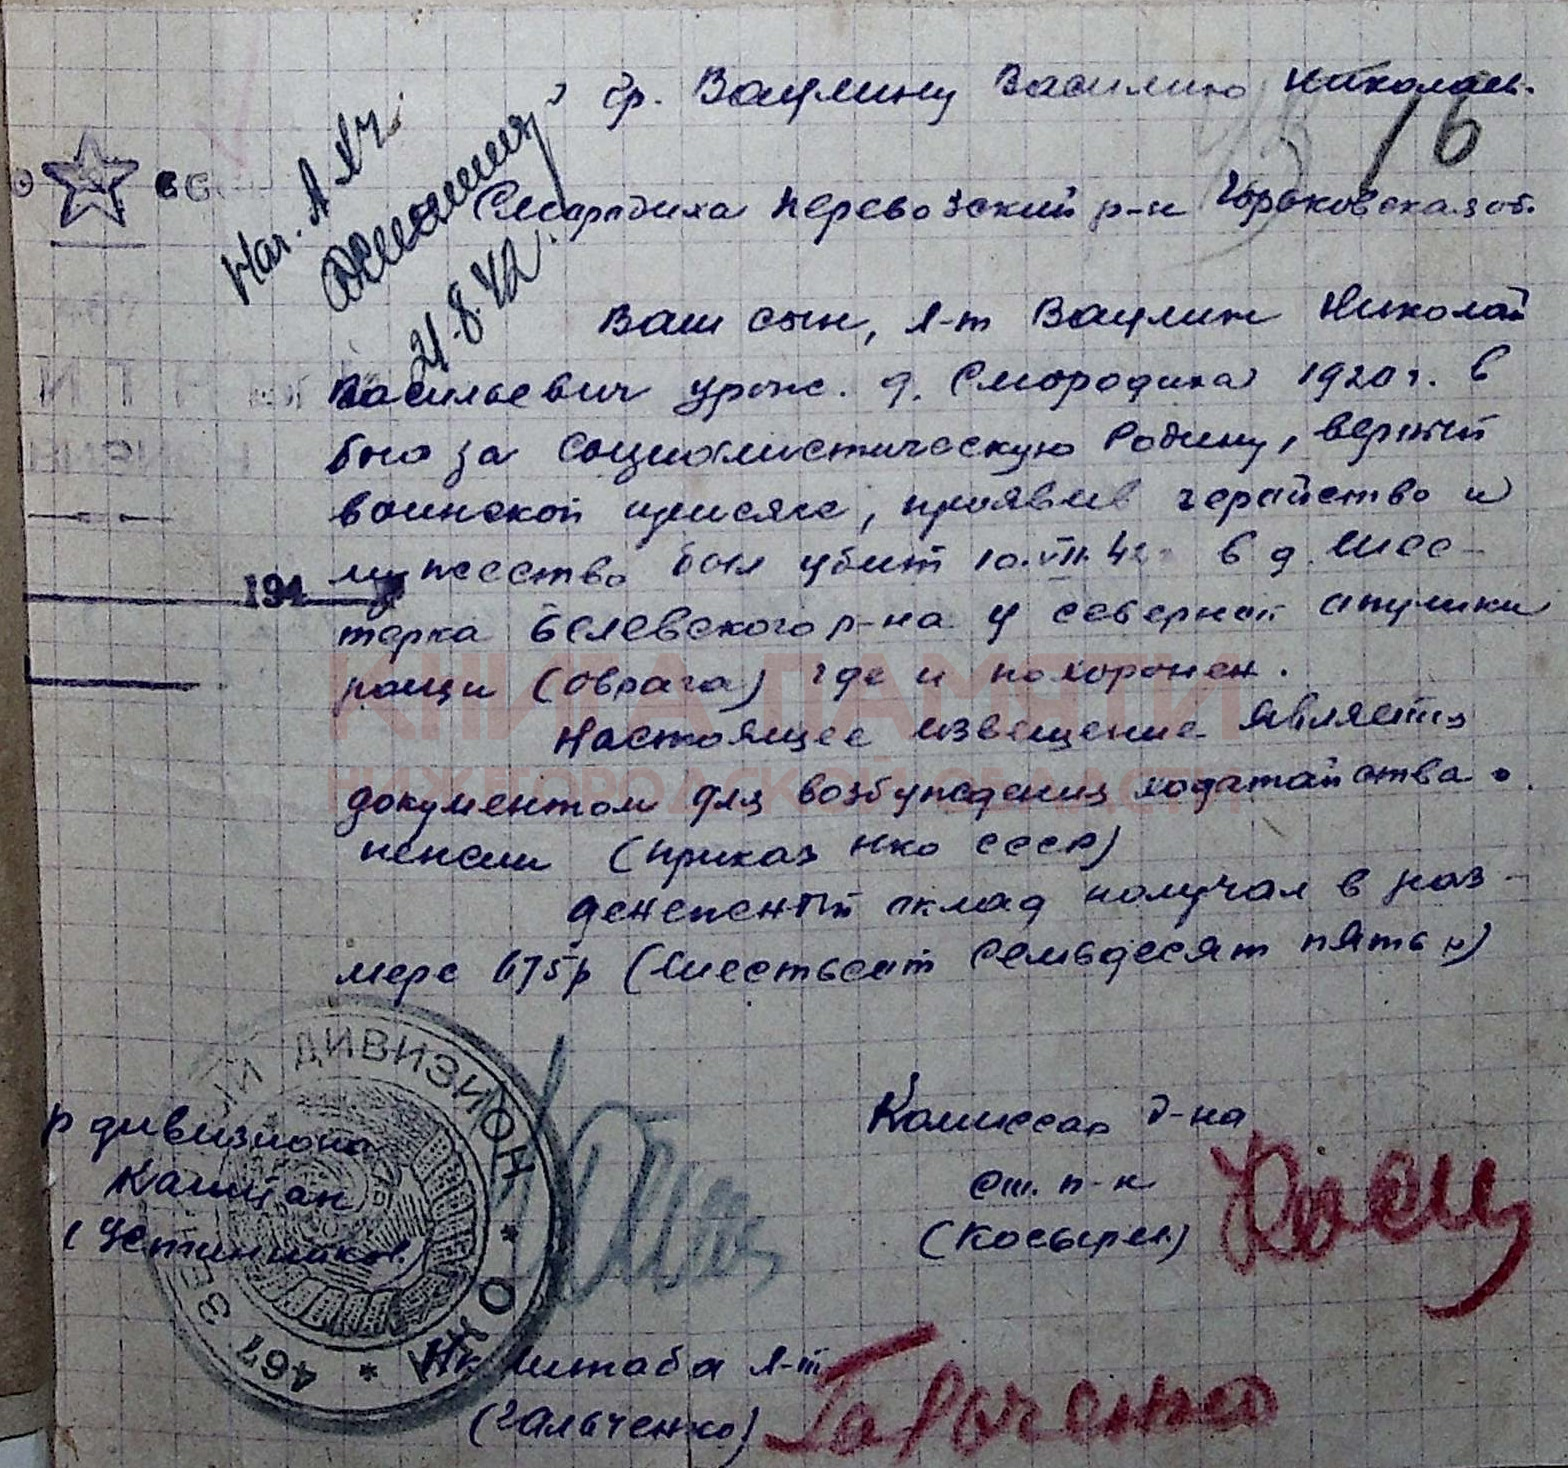 гр. Ваулину Василию Николаев.
16
Перевозский р-н Горьковская об.
Нач.
21.8.42
Ваш сын, л-т Ваулин Николай
Васильевич урож. д. Смородиха 1920 г. в
бою за социалистическую Родину, верный
воинской присяге, проявив геройство и
194
мужество был убит 10.VII.42 в д. Шес-
терка Белевского р-на у северной опушки
рощи (оврага) где и похоронен.
КНИГА ПАМЯТИ
Настоящее извещение является
НИЖЕГОРОДСКОЙ ОБЛАСТИ
документом для возбуждения ходатайства о
пенсии (приказ НКО СССР)
денежный оклад получал в раз-
мере 675 р (шестьсот семьдесят пять р)
ДИВИЗИОН
р дивизиона
Капитан
Комиссар д-на
ст. п-к
(Косырев)
467
штаба л-т
(Гальченко)
Гальченко